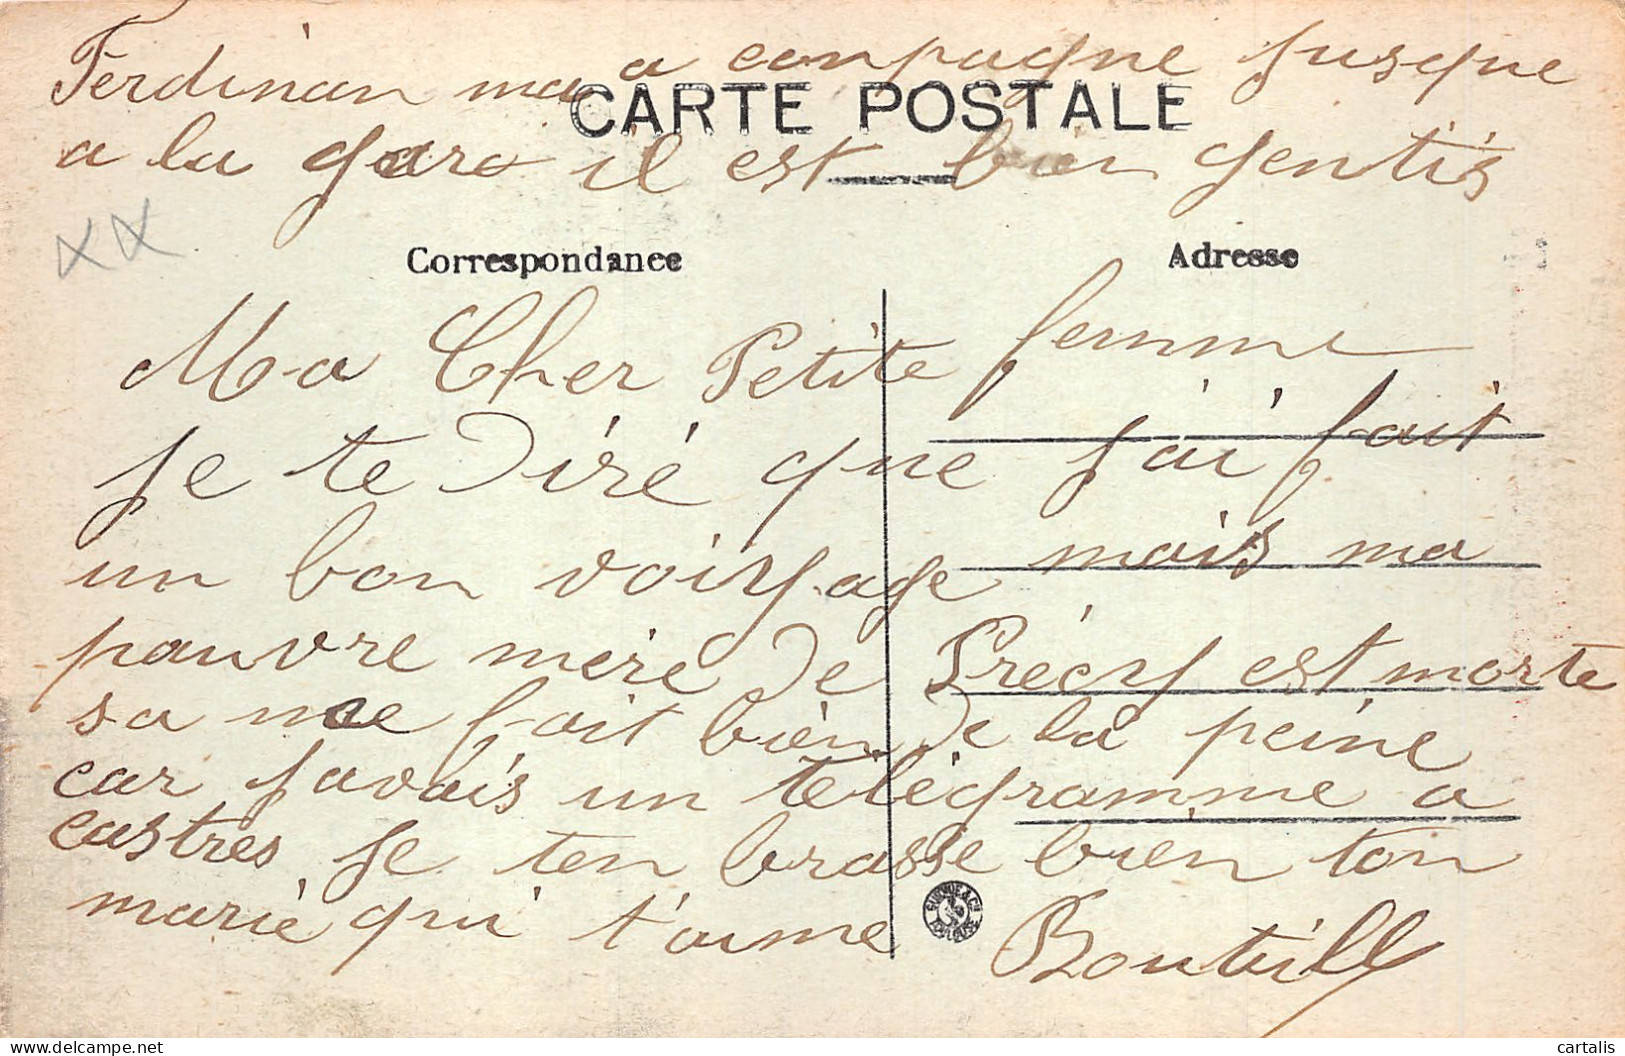 Ferdinan ma a conpagne jusque
CARTE POSTALE
a la gare il est bien gentis
XX
Correspondance
Adresse
Ma Cher Petite femme
je te diré que j'ai fait
un bon voisyage mais ma
pauvre mère de Précy est morte
sa me fait bièn de la peine
car javais un télégramme a
castres je ten brasse bièn ton
marie qui t'aime Boutilly
LABOUCHE & Cie TOULOUSE
cartalis